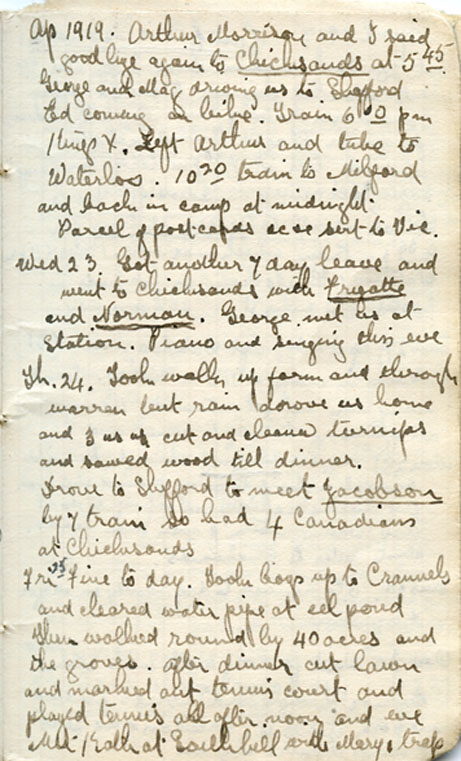 Ap 1919. Arthur Morrison and I said
good bye again to Chicksands at 5 45.
George and Mag driving us to Shefford
Ed coming on bike. Train 6 00 pm
Kings X. Left Arthur and tube to
Waterloo. 10 20 train to Milford
and back in camp at midnight.
Parcel of postcards sent to Vic.
Wed 23. Got another 7 day leave and
went to Chicksands with
and Norman. George met us at
station. Piano and singing this eve
Th. 24. Took walk up farm and through
warren but rain drove us home
and 3 us cut and cleaned turnips
and sawed wood till dinner.
Drove to Shefford to meet Jacobson
by 7 train so had 4 Canadians
at Chicksands
Fri 25 Fine to day. Took boys up to
and cleared water pipe at eel pond
then walked round by 40 acres and
the groves. After dinner cut lawn
and marked out tennis court and
played tennis all after. noon and eve
Met at with Mary & trap